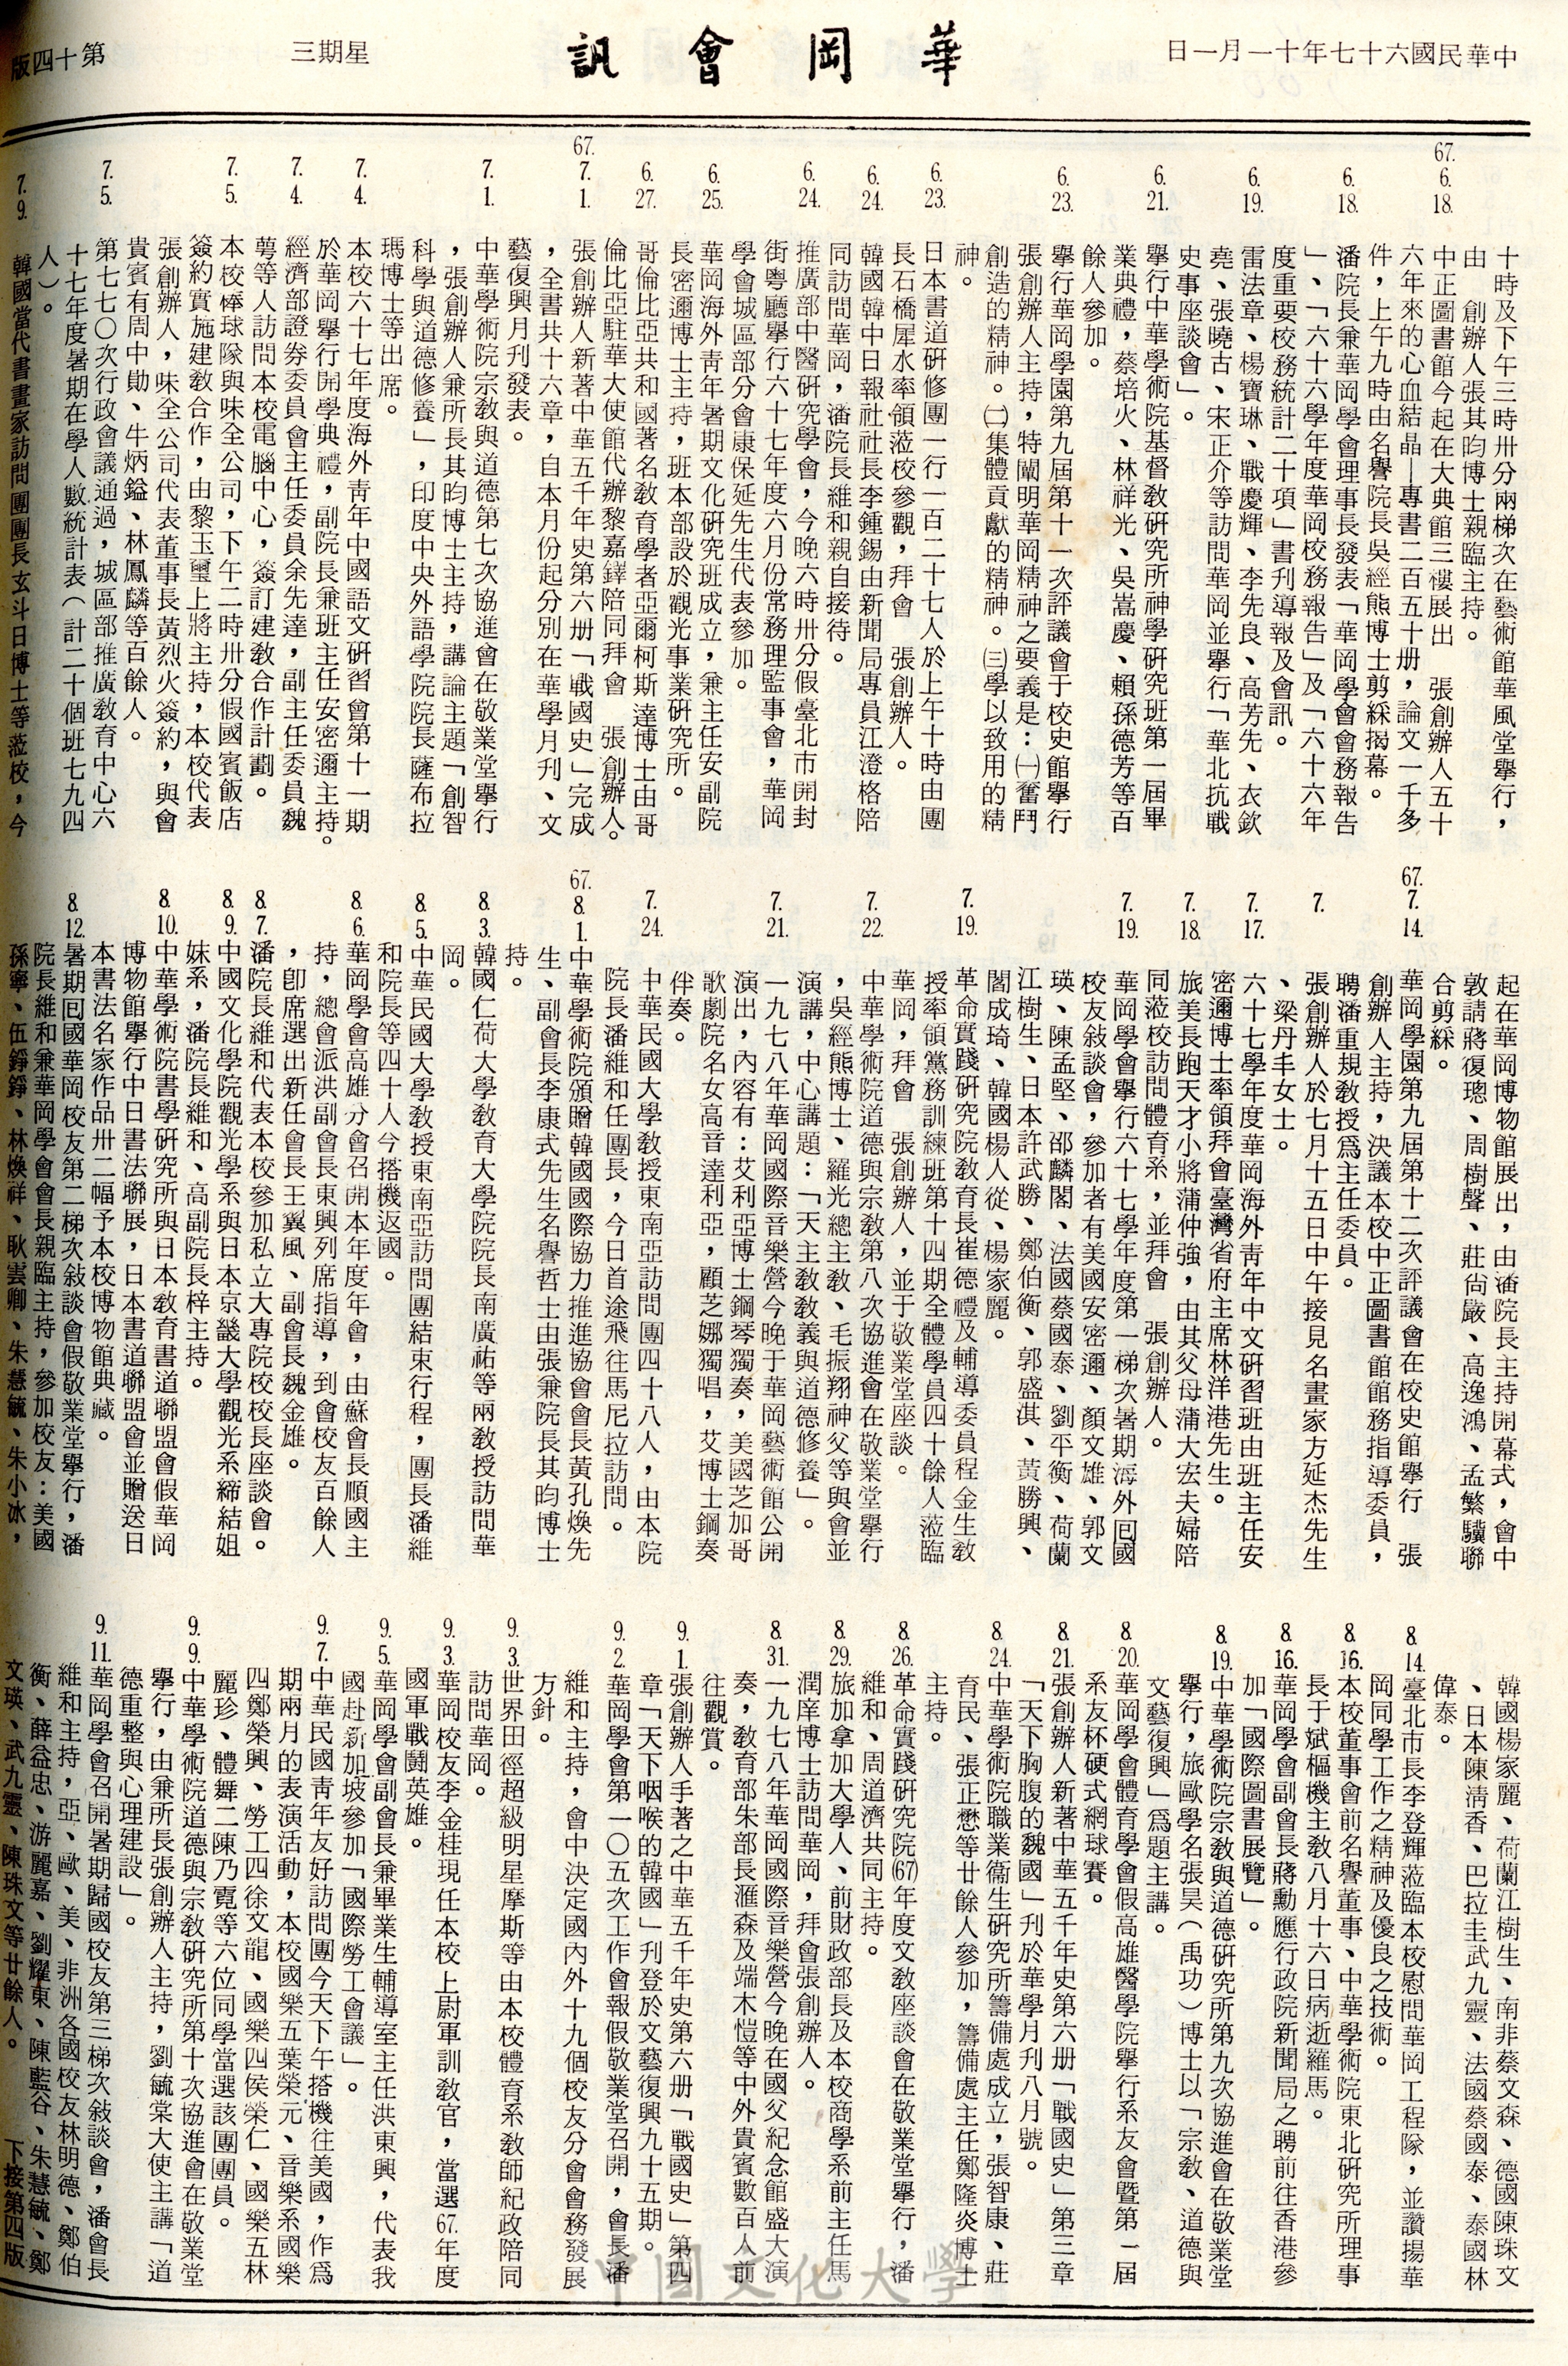 中華民國六十七年十一月一日
華岡會訊
星期三
第十四版
67. 6. 18.
十時及下午三時卅分兩梯次在藝術館華風堂舉行，
由　創辦人張其昀博士親臨主持。
中正圖書館今起在大典館三樓展出　張創辦人五十
六年來的心血結晶—專書二百五十册，論文一千多
件，上午九時由名譽院長吳經熊博士剪綵揭幕。
6. 18.
潘院長兼華岡學會理事長發表「華岡學會會務報告
」、「六十六學年度華岡校務報告」及「六十六年
度重要校務統計二十項」書刋導報及會訊。
6. 19.
雷法章、楊寶琳、戰慶輝、李先良、高芳先、衣欽
堯、張曉古、宋正介等訪問華岡並舉行「華北抗戰
史事座談會」。
6. 21.
舉行中華學術院基督敎硏究所神學硏究班第一屆畢
業典禮，蔡培火、林祥光、吳嵩慶、賴孫德芳等百
餘人參加。
6. 23.
舉行華岡學園第九屆第十一次評議會于校史館舉行
張創辦人主持，特闡明華岡精神之要義是：㈠奮鬥
創造的精神。㈡集體貢獻的精神。㈢學以致用的精
神。
6. 23.
日本書道硏修團一行一百二十七人於上午十時由團
長石橋犀水率領蒞校參觀，拜會　張創辦人。
6. 24.
韓國韓中日報社社長李鍾錫由新聞局專員江澄格陪
同訪問華岡，潘院長維和親自接待。
6. 24.
推廣部中醫硏究學會，今晚六時卅分假臺北市開封
街粵廳舉行六十七年度六月份常務理監事會，華岡
學會城區部分會康保延先生代表參加。
6. 25.
華岡海外靑年暑期文化硏究班成立，兼主任安副院
長密邇博士主持，班本部設於觀光事業硏究所。
6. 27.
哥倫比亞共和國著名敎育學者亞爾柯斯達博士由哥
倫比亞駐華大使館代辦黎嘉鐸陪同拜會　張創辦人。
67. 7. 1.
張創辦人新著中華五千年史第六册「戰國史」完成
，全書共十六章，自本月份起分別在華學月刋、文
藝復興月刋發表。
7. 1.
中華學術院宗敎與道德第七次協進會在敬業堂舉行
，張創辦人兼所長其昀博士主持，講論主題「創智
科學與道德修養」，印度中央外語學院院長薩布拉
瑪博士等出席。
7. 4.
本校六十七年度海外靑年中國語文硏習會第十一期
於華岡舉行開學典禮，副院長兼班主任安密邇主持。
7. 4.
經濟部證券委員會主任委員余先達，副主任委員魏
萼等人訪問本校電腦中心，簽訂建敎合作計劃。
7. 5.
本校棒球隊與味全公司，下午二時卅分假國賓飯店
簽約實施建敎合作，由黎玉璽上將主持，本校代表
張創辦人，味全公司代表董事長黃烈火簽約，與會
貴賓有周中勛、牛炳鎰、林鳳麟等百餘人。
7. 5.
第七七〇次行政會議通過，城區部推廣敎育中心六
十七年度暑期在學人數統計表（計二十個班七九四
人）。
7. 9.
韓國當代書畫家訪問團團長玄斗日博士等蒞校，今
起在華岡博物館展出，由潘院長主持開幕式，會中
敦請蔣復璁、周樹聲、莊尙嚴、高逸鴻、孟繁驥聯
合剪綵。
67. 7. 14.
華岡學園第九屆第十二次評議會在校史館舉行　張
創辦人主持，決議本校中正圖書館館務指導委員，
聘潘重規敎授爲主任委員。
7.
張創辦人於七月十五日中午接見名畫家方延杰先生
、梁丹丰女士。
7. 17.
六十七學年度華岡海外靑年中文硏習班由班主任安
密邇博士率領拜會臺灣省府主席林洋港先生。
7. 18.
旅美長跑天才小將蒲仲強，由其父母蒲大宏夫婦陪
同蒞校訪問體育系，並拜會　張創辦人。
7. 19.
華岡學會舉行六十七學年度第一梯次暑期海外囘國
校友敍談會，參加者有美國安密邇、顏文雄、郭文
瑛、陳孟堅、邵麟閣、法國蔡國泰、劉平衡、荷蘭
江樹生、日本許武勝、鄭伯衡、郭盛淇、黃勝興、
閻成琦、韓國楊人從、楊家麗。
7. 19.
革命實踐硏究院敎育長崔德禮及輔導委員程金生敎
授率領黨務訓練班第十四期全體學員四十餘人蒞臨
華岡，拜會　張創辦人，並于敬業堂座談。
7. 22.
中華學術院道德與宗敎第八次協進會在敬業堂舉行
，吳經熊博士、羅光總主敎、毛振翔神父等與會並
演講，中心講題：「天主敎敎義與道德修養」。
7. 21.
一九七八年華岡國際音樂營今晚于華岡藝術館公開
演出，內容有：艾利亞博士鋼琴獨奏，美國芝加哥
歌劇院名女高音達利亞，顧芝娜獨唱，艾博士鋼奏
伴奏。
7. 24.
中華民國大學敎授東南亞訪問團四十八人，由本院
院長潘維和任團長，今日首途飛往馬尼拉訪問。
67. 8. 1.
中華學術院頒贈韓國國際協力推進協會會長黃孔煥先
生、副會長李康式先生名譽哲士由張兼院長其昀博士
持。
8. 3.
韓國仁荷大學敎育大學院院長南廣祐等兩敎授訪問華
岡。
8. 5.
中華民國大學敎授東南亞訪問團結束行程，團長潘維
和院長等四十人今搭機返國。
8. 6.
華岡學會高雄分會召開本年度年會，由蘇會長順國主
持，總會派洪副會長東興列席指導，到會校友百餘人
，卽席選出新任會長王翼風、副會長魏金雄。
8. 7.
潘院長維和代表本校參加私立大專院校校長座談會。
8. 9.
中國文化學院觀光學系與日本京畿大學觀光系締結姐
妹系，潘院長維和、高副院長梓主持。
8. 10.
中華學術院書學硏究所與日本敎育書道聯盟會假華岡
博物館舉行中日書法聯展，日本書道聯盟會並贈送日
本書法名家作品卅二幅予本校博物館典藏。
8. 12.
暑期囘國華岡校友第二梯次敍談會假敬業堂舉行，潘
院長維和兼華岡學會會長親臨主持，參加校友：美國
孫寧、伍錚錚、林煥祥、耿雲卿、朱慧毓、朱小冰，
韓國楊家麗、荷蘭江樹生、南非蔡文森、德國陳珠文
、日本陳淸香、巴拉圭武九靈、法國蔡國泰、泰國林
偉泰。
8. 14.
臺北市長李登輝蒞臨本校慰問華岡工程隊，並讚揚華
岡同學工作之精神及優良之技術。
8. 16.
本校董事會前名譽董事、中華學術院東北硏究所理事
長于斌樞機主敎八月十六日病逝羅馬。
8. 16.
華岡學會副會長蔣勳應行政院新聞局之聘前往香港參
加「國際圖書展覽」。
8. 19.
中華學術院宗敎與道德硏究所第九次協進會在敬業堂
舉行，旅歐學名張昊（禹功）博士以「宗敎、道德與
文藝復興」爲題主講。
8. 20.
華岡學會體育學會假高雄醫學院舉行系友會暨第一屆
系友杯硬式網球賽。
8. 21.
張創辦人新著中華五千年史第六册「戰國史」第三章
「天下胸腹的魏國」刋於華學月刋八月號。
8. 24.
中華學術院職業衞生硏究所籌備處成立，張智康、莊
育民、張正懋等廿餘人參加，籌備處主任鄭隆炎博士
主持。
8. 26.
革命實踐硏究院(67)年度文敎座談會在敬業堂舉行，潘
維和、周道濟共同主持。
8. 29.
旅加拿加大學人、前財政部長及本校商學系前主任馬
潤庠博士訪問華岡，拜會張創辦人。
8. 31.
一九七八年華岡國際音樂營今晚在國父紀念館盛大演
奏，敎育部朱部長滙森及端木愷等中外貴賓數百人前
往觀賞。
9. 1.
張創辦人手著之中華五千年史第六册「戰國史」第四
章「天下咽喉的韓國」刋登於文藝復興九十五期。
9. 2.
華岡學會第一〇五次工作會報假敬業堂召開，會長潘
維和主持，會中決定國內外十九個校友分會會務發展
方針。
9. 3.
世界田徑超級明星摩斯等由本校體育系敎師紀政陪同
訪問華岡。
9. 3.
華岡校友李金桂現任本校上尉軍訓敎官，當選67.年度
國軍戰鬪英雄。
9. 5.
華岡學會副會長兼畢業生輔導室主任洪東興，代表我
國赴新加坡參加「國際勞工會議」。
9. 7.
中華民國靑年友好訪問團今天下午搭機往美國，作爲
期兩月的表演活動，本校國樂五葉榮元、音樂系國樂
四鄭榮興、勞工四徐文龍、國樂四侯榮仁、國樂五林
麗珍、體舞二陳乃寬等六位同學當選該團團員。
9. 9.
中華學術院道德與宗敎硏究所第十次協進會在敬業堂
舉行，由兼所長張創辦人主持，劉毓棠大使主講「道
德重整與心理建設」。
9. 11.
華岡學會召開暑期歸國校友第三梯次敍談會，潘會長
維和主持，亞、歐、美、非洲各國校友林明德、鄭伯
衡、薛益忠、游麗嘉、劉耀東、陳藍谷、朱慧毓、鄭
文瑛、武九靈、陳珠文等廿餘人。
下接第四版
中國文化大學